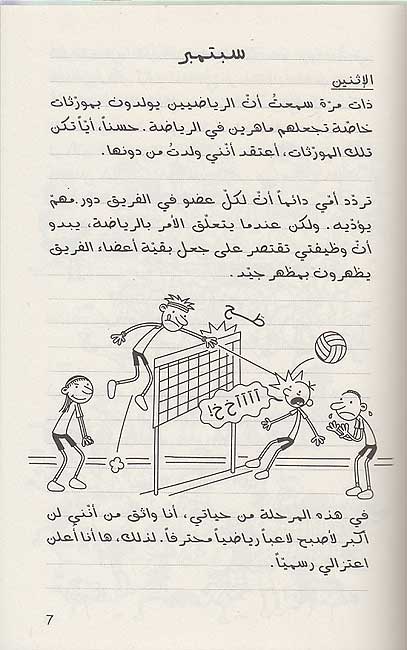 سبتمبر
الإثنين
ذات مرّة سمعتُ أنّ الرياضيين يولدون بمورّثات
خاصّة تجعلهم ماهرين في الرياضة. حسناً، أيّاً تكن
تلك المورّثات، أعتقد أنّني ولدتُ من دونها.
تردّد أمّي دائماً أنّ لكلّ عضو في الفريق دور مهمّ
يؤدّيه. ولكن عندما يتعلّق الأمر بالرياضة، يبدو
أنّ وظيفتي تقتصر على جعل بقيّة أعضاء الفريق
يظهرون بمظهر جيّد.
طخ
آآآآخ خ!
في هذه المرحلة من حياتي، أنا واثق من أنّني لن
أكبر لأصبح لاعباً رياضياً محترفاً. لذلك، ها أنا أعلن
اعتزالي رسميّاً.
7